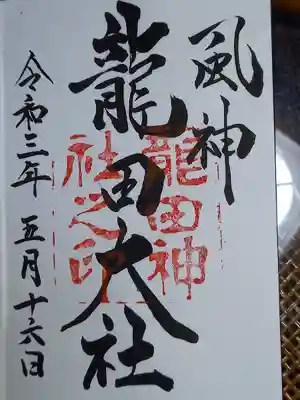 風神
龍田大社
龍田神
社之印
令和三年五月十六日